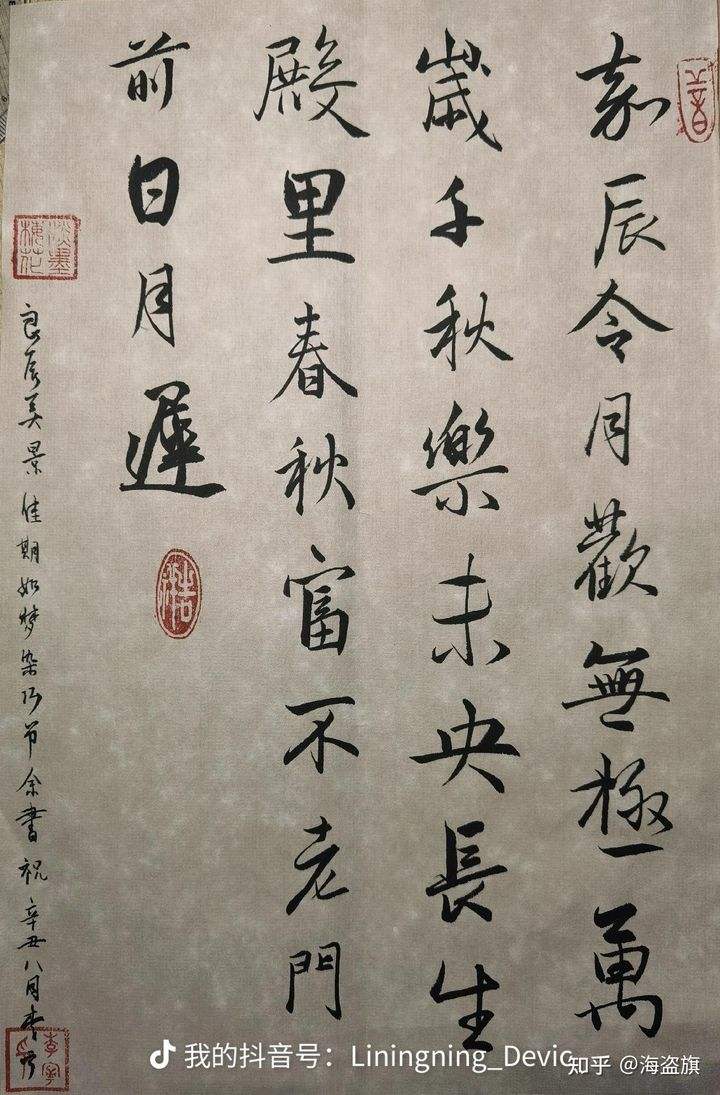 嘉辰令月歡無極萬
歲千秋樂未央長生
殿里春秋富不老門
前日月遲
良辰美景佳期如梦染巧节余書祝辛丑八月李宁
淡墨
浩
我的抖音号：Liningning_Devic
知乎 @海盗旗